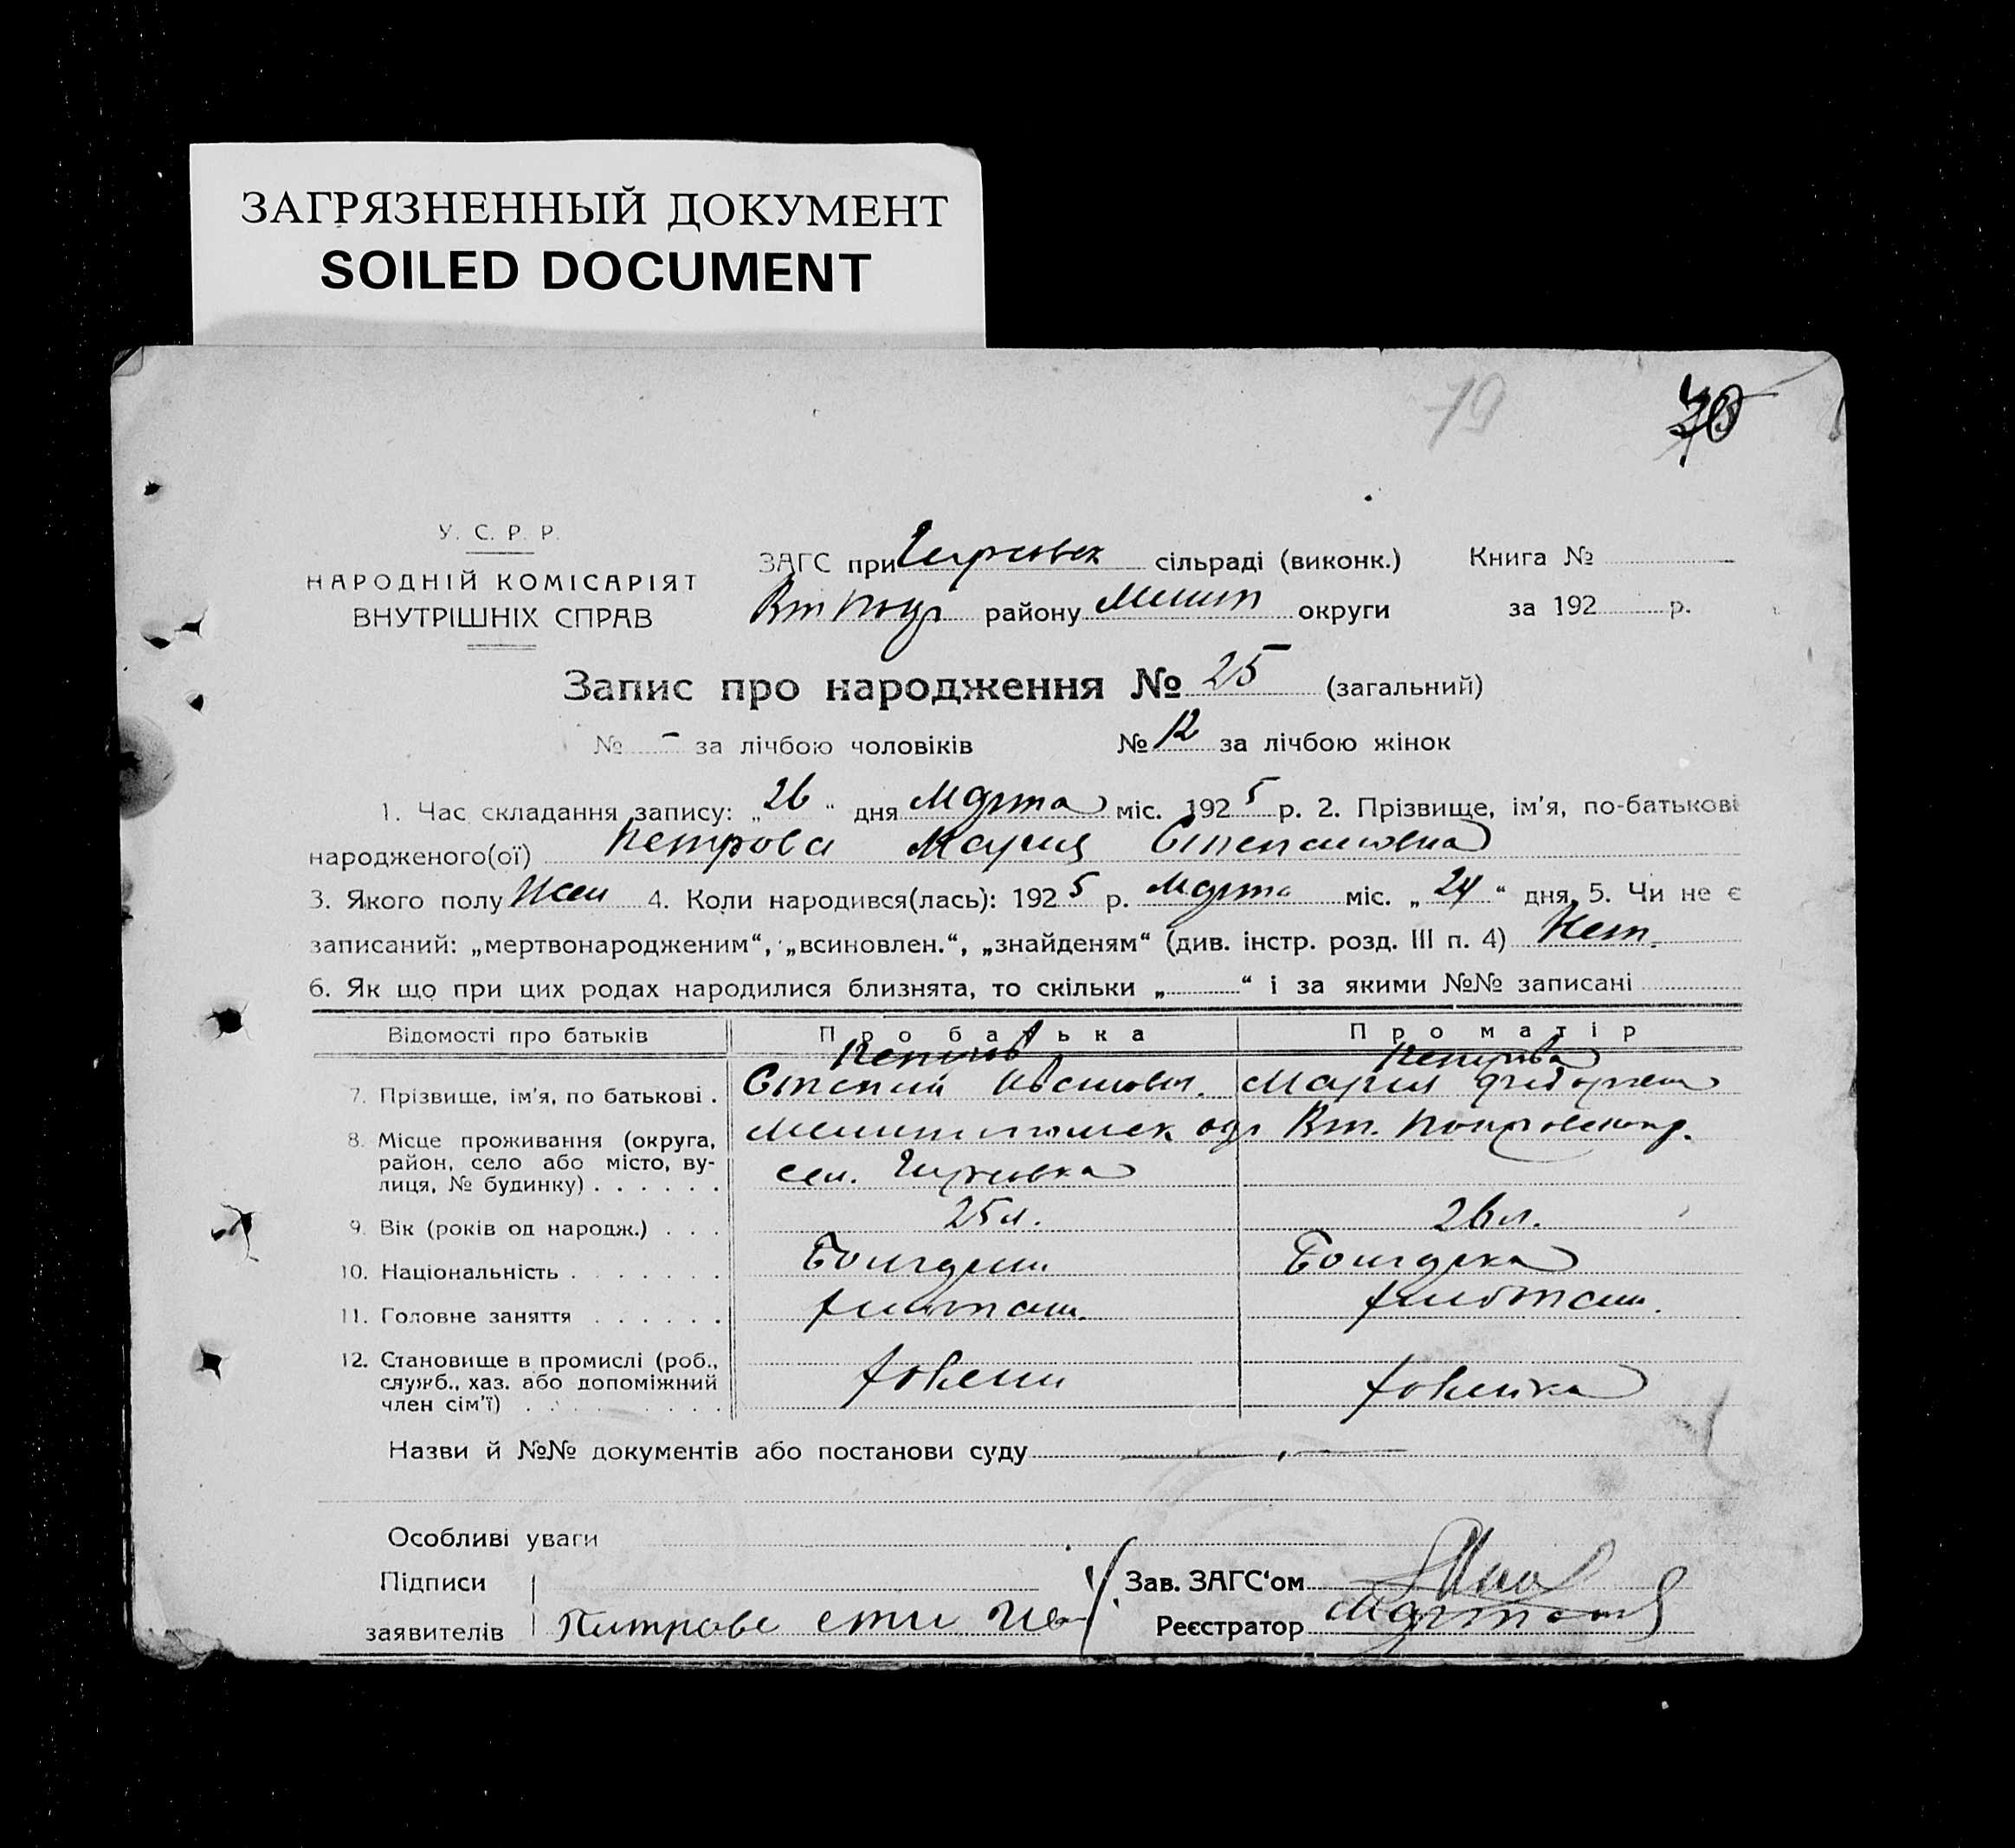 ЗАГРЯЗНЕННЫЙ ДОКУМЕНТ
SOILED DOCUMENT
79
У. С. Р. Р.
НАРОДНІЙ КОМІСАРІЯТ
ВНУТРІШНІХ СПРАВ
ЗАГС при сільраді (виконк.) Книга №
району Мелит округи за 192 р.
Запис про народження № 25 (загальний)
№ - за лічбою чоловіків № 12 за лічбою жінок
1. Час складання запису: „26“ дня Марта міс. 1925 р. 2. Прізвище, ім'я, по-батькові
народженого(ої) Петрова Мария Степановна
3. Якого полу Жен 4. Коли народився(лась): 1925 р. Марта міс. „24“ дня, 5. Чи не є
записаний: „мертвонародженим“, „всиновлен.“, „знайденям“ (див. інстр. розд. III п. 4) Нет.
6. Як що при цих родах народилися близнята, то скільки „ “ і за якими №№ записані
Відомості про батьків Про батька Про матір
Петров Петрова
7. Прізвище, ім'я, по батькові . Степан Иванович. Мария
8. Місце проживання (округа,
район, село або місто, ву-
лиця, № будинку) . . . . . .
сел.
9. Вік (років од народж.) . . . 25 л. 26 л.
10. Національність . . . . . . . Болгарин Болгарка
11. Головне заняття . . . . . . хлебопаш. хлебопаш.
12. Становище в промислі (роб.,
служб., хаз. або допоміжний
член сім'ї) . . . . . . . . . хозяин хозяйка
Назви й №№ документів або постанови суду
Особливі уваги
Підписи
заявителів
Зав. ЗАГС‘ом
Реєстратор